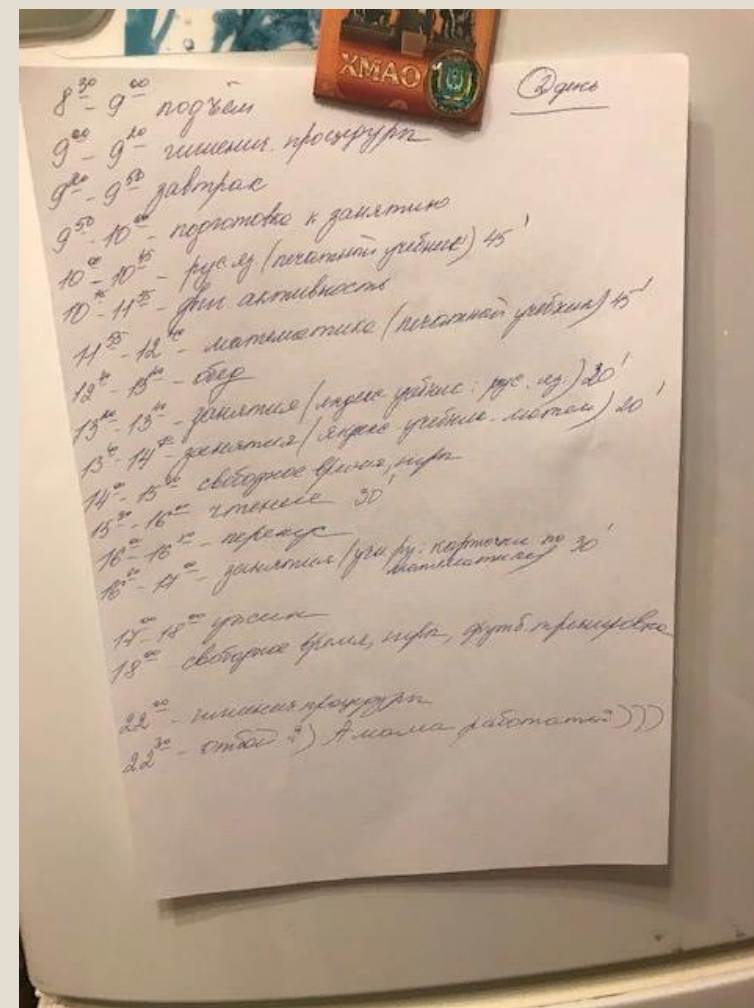 ХМАО
② день
8³⁰ - 9⁰⁰ подъём
9⁰⁰ - 9²⁰ гигиенич. процедуры
9²⁰ - 9⁵⁰ завтрак
9⁵⁰ - 10⁰⁰ - подготовка к занятию
10⁰⁰ - 10⁴⁵ - рус. яз (печатный учебник) 45'
10⁴⁵ - 11⁵⁵ - физ активность
11⁵⁵ - 12⁴⁰ - математика (печатный учебник) 45'
12⁴⁰ - 13²⁰ - обед
13²⁰ - 13⁴⁰ - занятия (яндекс учебник: рус. яз.) 20'
13⁴⁰ - 14⁰⁰ занятия (яндекс учебник. матем) 20'
14⁰⁰ - 15³⁰ свободное время, игры
15³⁰ - 16⁰⁰ чтение 30'
16⁰⁰ - 16³⁰ - перекус
16³⁰ - 17⁰⁰ - занятия (учи ру: карточки по математике) 30'
17⁰⁰ - 18⁰⁰ ужин
18⁰⁰ свободное время, игры, футб. тренировка
22⁰⁰ - гигиенич процедуры
22³⁰ - отбой А мама работать)))